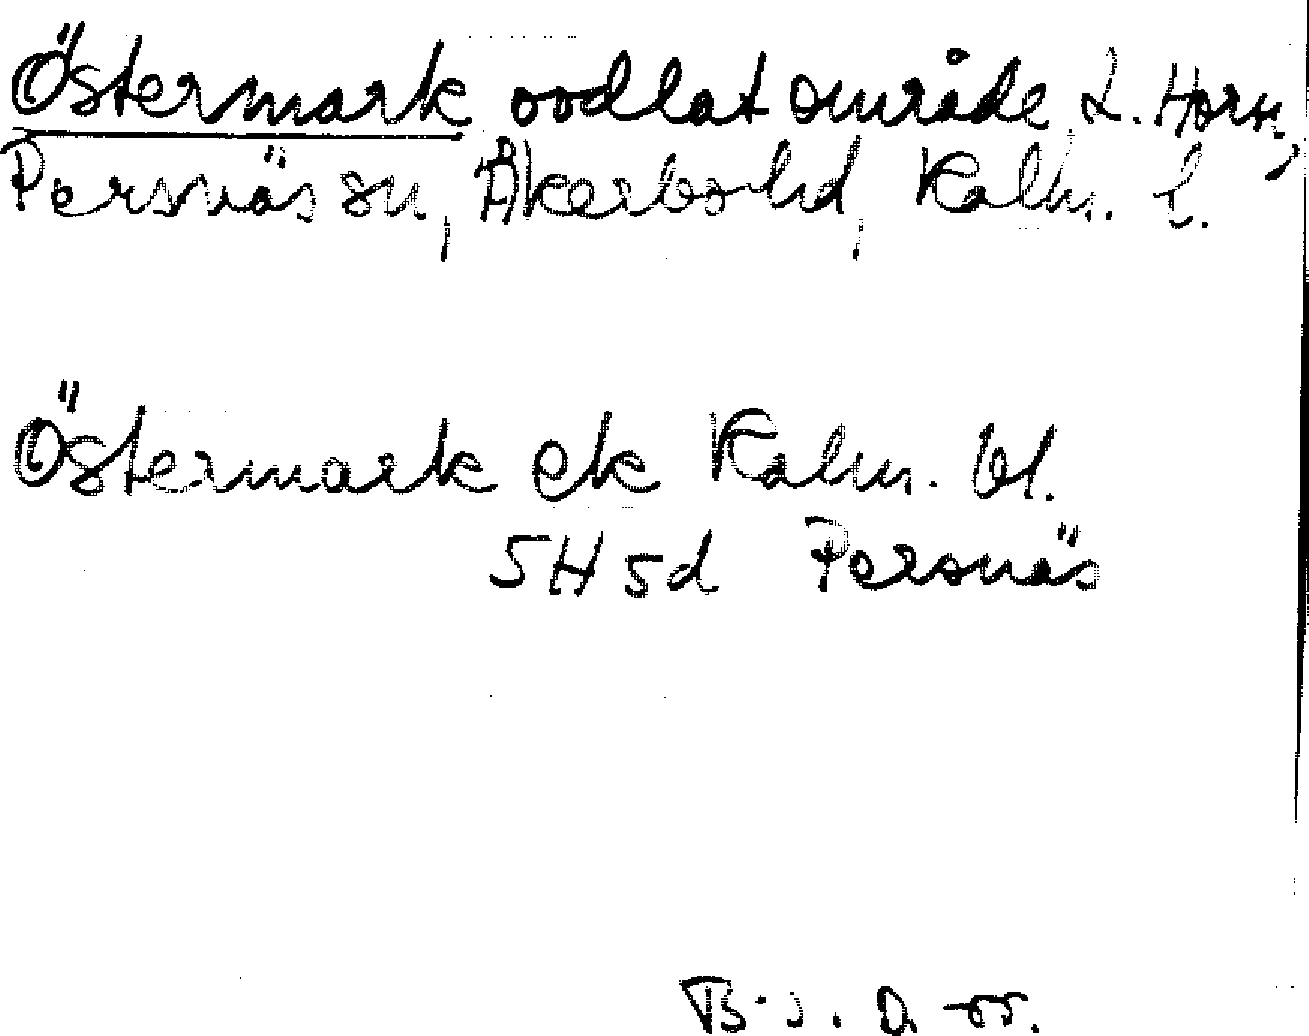 Östermark oodlat område L. Horn,
Persnäs sn, Åkerbo hd, Kalm. l.
Östermark ek Kalm. bl.
5H 5d Persnäs